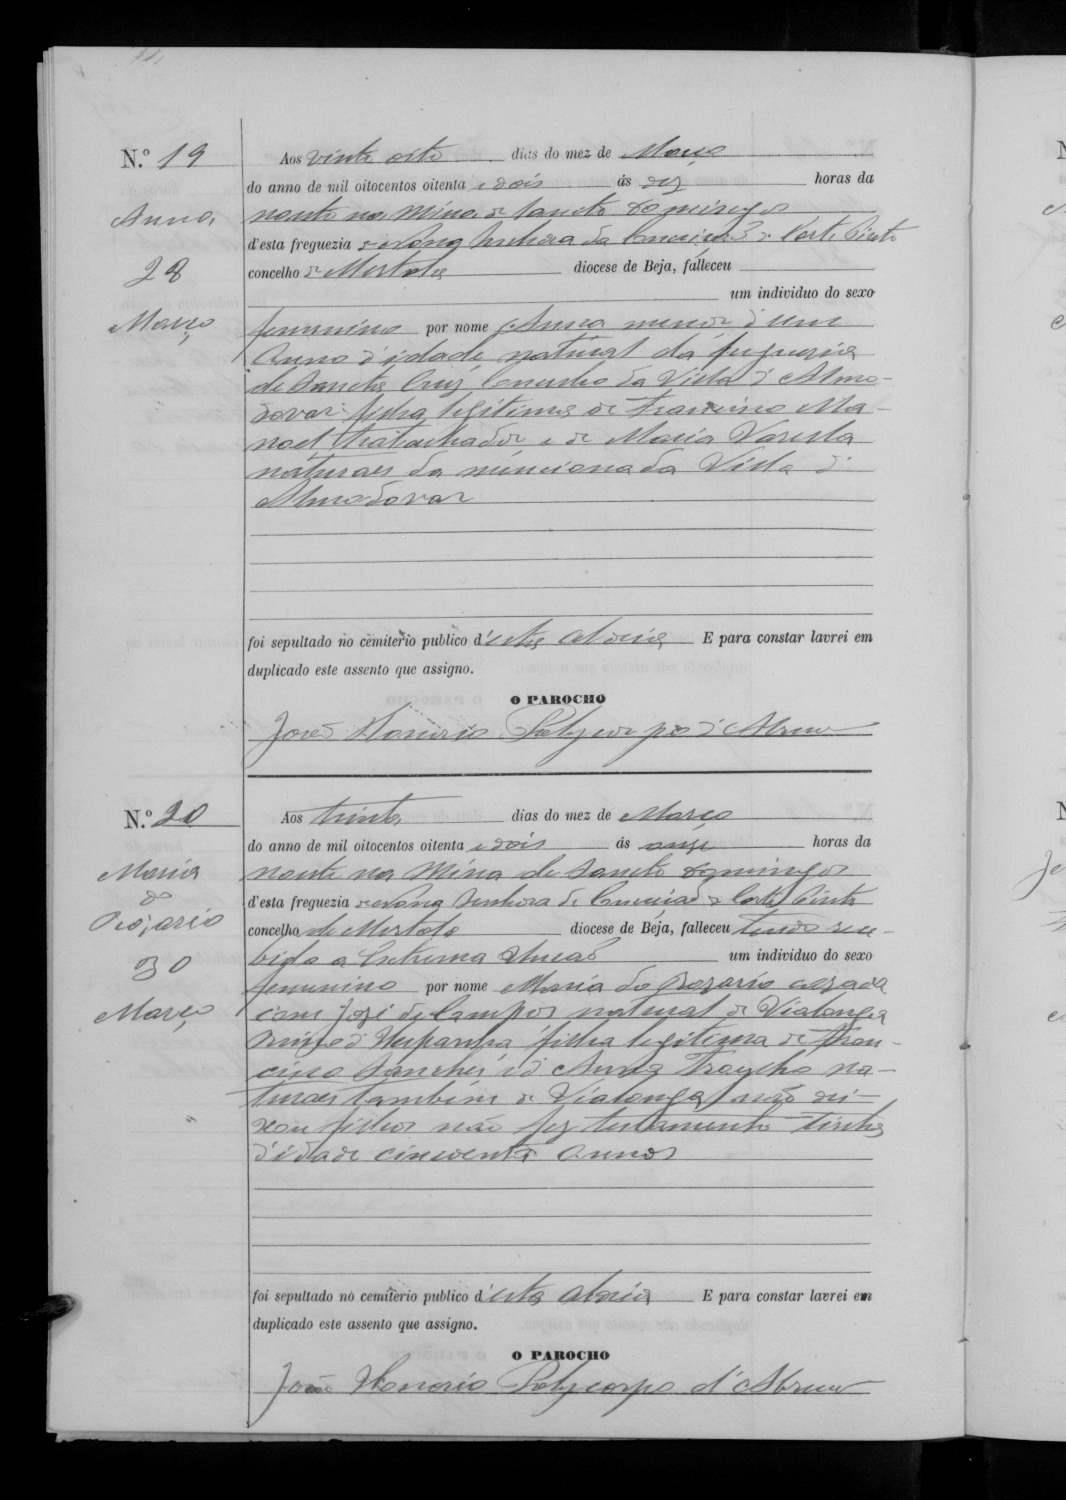 N.º 19
Anna
28
Março
Aos vinte oito dias do mez de Março
do anno de mil oitocentos oitenta e dois ás dez horas da
noute na Mina de Sancto Domingos
d'esta freguezia de Nossa Senhora da Conceição de Corte Pinto
concelho de Mertola diocese de Beja, falleceu
um individuo do sexo
femenino por nome Anna menor d'um
anno d'idade, natural da freguezia
de Sancta Cruz Concelho da Villa d'Almo-
dovar filha legitima de Francisco Ma-
noel, trabalhador e de Maria Varella
naturaes da mencionada Villa d'
Almodovar
foi sepultado no cemiterio publico d'esta aldeia E para constar lavrei em
duplicado este assento que assigno.
O PAROCHO
João Honorio Polycorpo d'Abreu
N.º 20
Maria
do
Rosario
30
Março
Aos trinta dias do mez de Março
do anno de mil oitocentos oitenta e dois ás onze horas da
noute na Mina de Sancto Domingos
d'esta freguezia de Nossa Senhora da Conceição de Corte Pinto
concelho de Mertola diocese de Beja, falleceu tendo rece-
bido a Extrema Unção um individuo do sexo
femenino por nome Maria do Rosario casada
com José de Campos natural de Vialonga
Reino d'Hespanha, filha legitima de Fran-
cisco Sanches e d'Anna na-
turaes tambem de Vialonga, não dei-
xou filhos não fez testamento tinha
d'idade cincoenta annos
foi sepultado no cemiterio publico d'esta aldeia E para constar lavrei em
duplicado este assento que assigno.
O PAROCHO
João Honorio Polycorpo d'Abreu